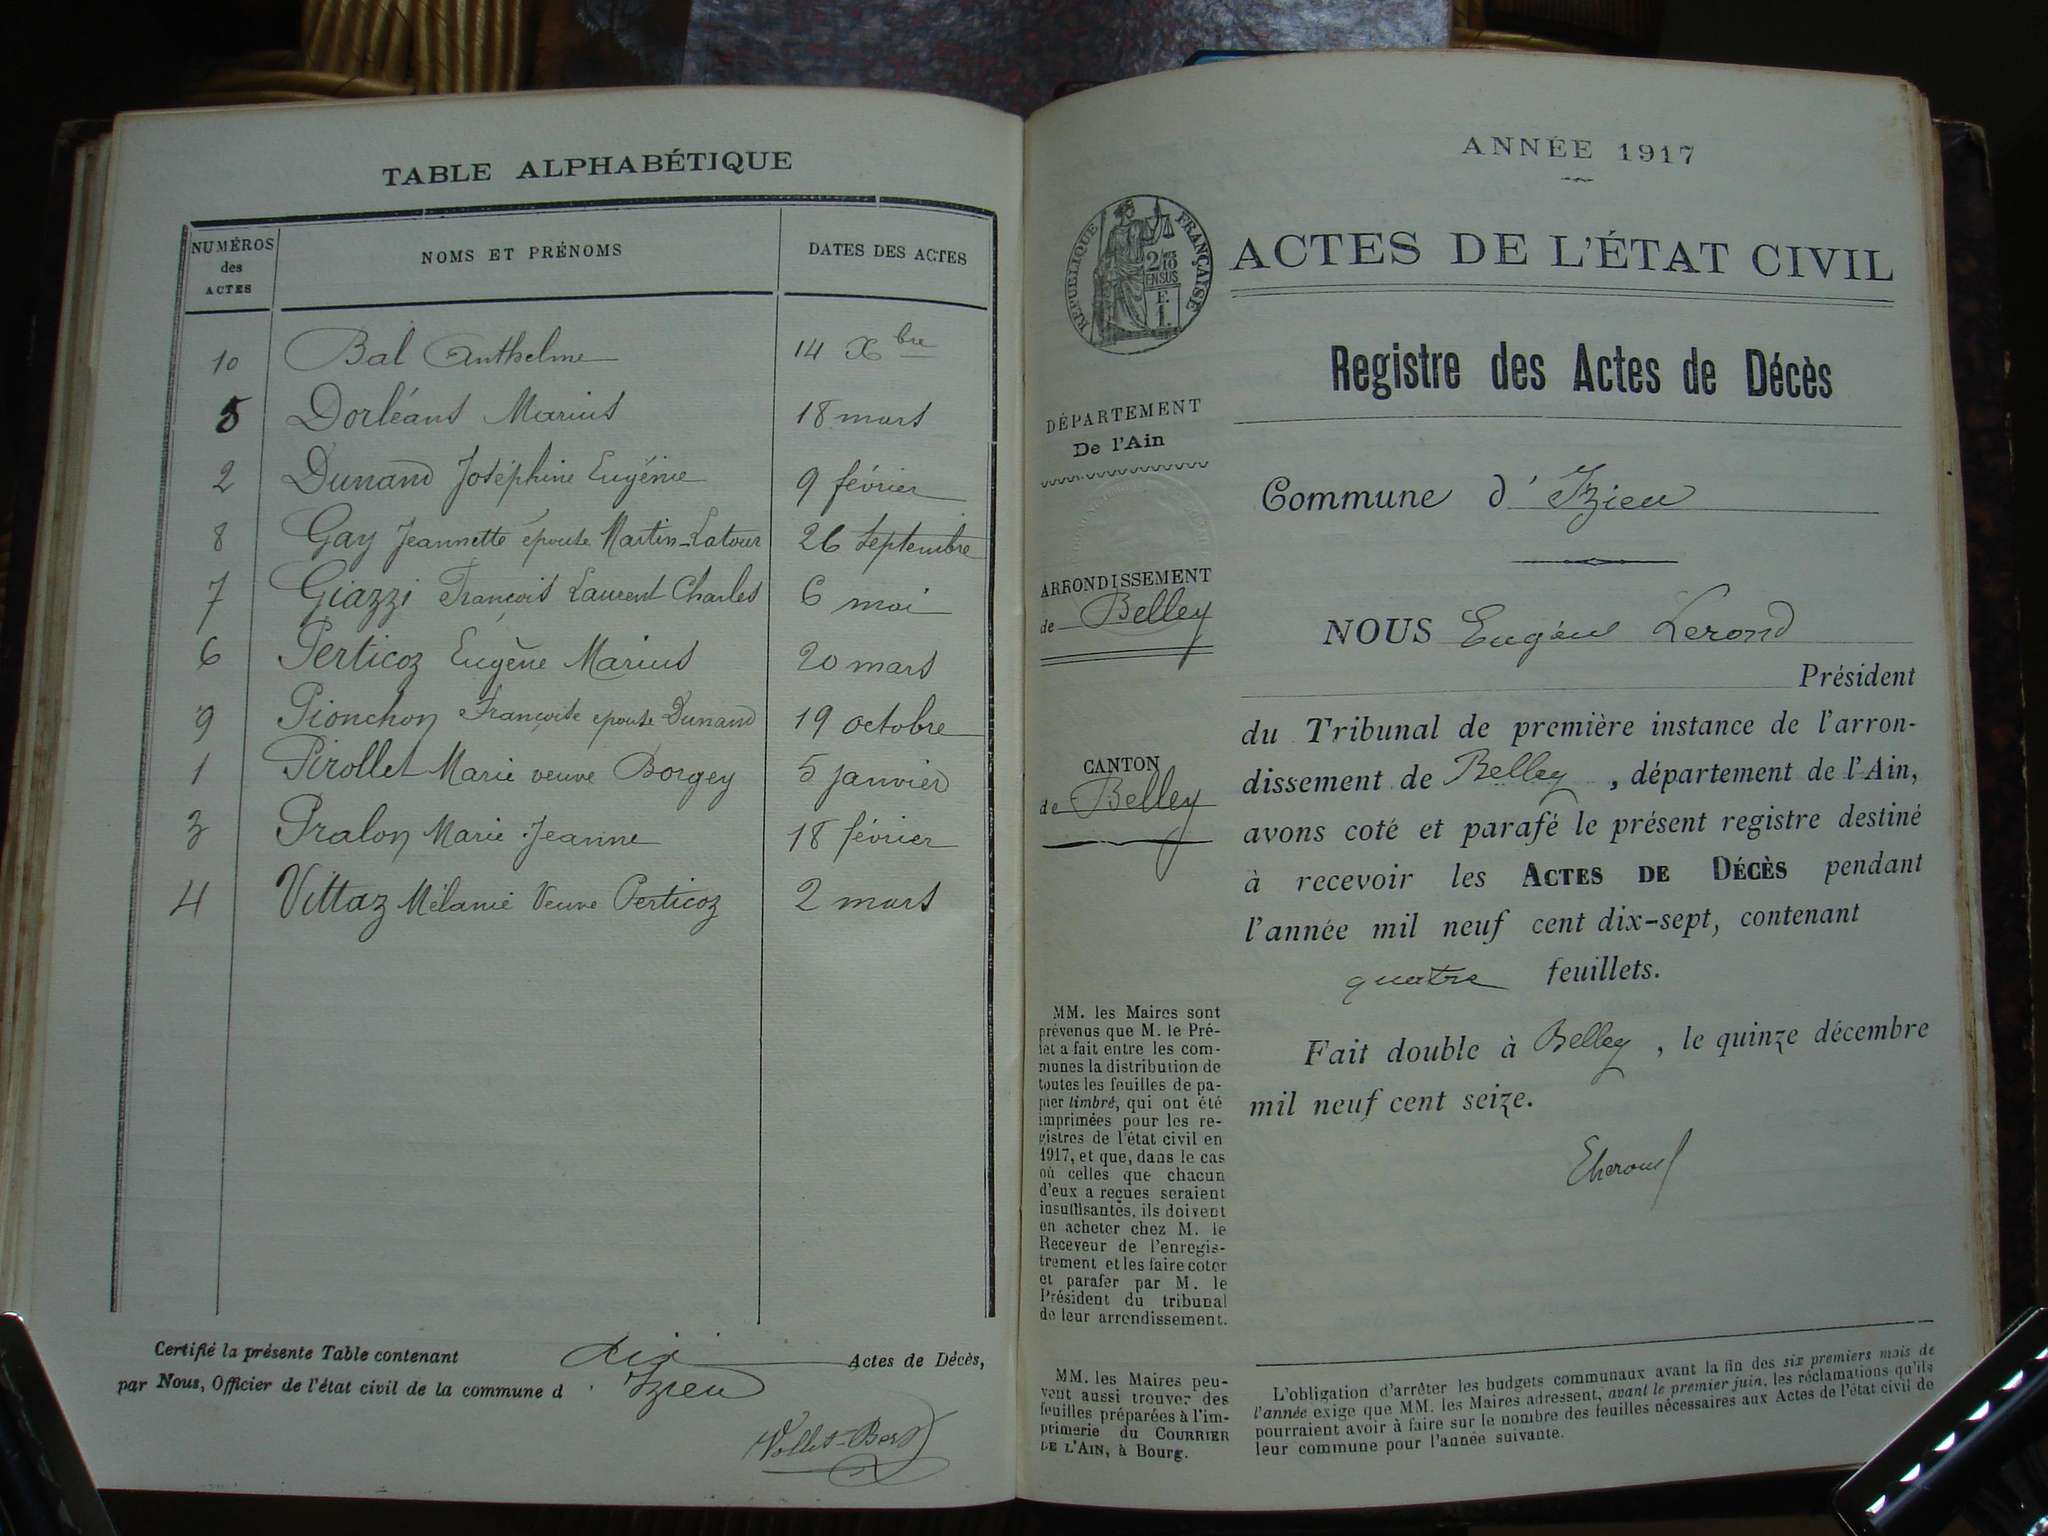 TABLE ALPHABÉTIQUE
NUMÉROS des ACTES
NOMS ET PRÉNOMS
DATES DES ACTES
10 Bal Anthelme 14 Xbre
5 Dorléans Marius 18 mars
2 Dunand Joséphine Eugénie 9 février
8 Gay Jeannette épouse Martin-Latour 26 septembre
7 Giazzi François Laurent Charles 6 mai
6 Perticoz Eugène Marius 20 mars
9 Pionchon Françoise épouse Dunand 19 octobre
1 Pirollet Marie veuve Borgey 5 janvier
3 Pralon Marie Jeanne 18 février
4 Vittaz Mélanie Veuve Perticoz 2 mars
Certifié la présente Table contenant dix Actes de Décès,
par Nous, Officier de l'état civil de la commune d'Izieu
ANNÉE 1917
RÉPUBLIQUE FRANÇAISE
2/10
EN SUS
F.
1.
ACTES DE L'ÉTAT CIVIL
Registre des Actes de Décès
DÉPARTEMENT
De l'Ain
Commune d'Izieu
ARRONDISSEMENT
de Belley
NOUS Eugène Lerond
Président
du Tribunal de première instance de l'arron-
dissement de Belley, département de l'Ain,
CANTON
de Belley
avons coté et parafé le présent registre destiné
à recevoir les ACTES DE DÉCÈS pendant
l'année mil neuf cent dix-sept, contenant
quatre feuillets.
Fait double à Belley, le quinze décembre
mil neuf cent seize.
MM. les Maires sont
prévenus que M. le Pré-
fet a fait entre les com-
munes la distribution de
toutes les feuilles de pa-
pier timbré, qui ont été
imprimées pour les re-
gistres de l'état civil en
1917, et que, dans le cas
où celles que chacun
d'eux a reçues seraient
insuffisantes, ils doivent
en acheter chez M. le
Receveur de l'enregis-
trement et les faire coter
et parafer par M. le
Président du tribunal
de leur arrondissement.
MM. les Maires peu-
vent aussi trouver des
feuilles préparées à l'im-
primerie du COURRIER
DE L'AIN, à Bourg.
L'obligation d'arrêter les budgets communaux avant la fin des six premiers mois de
l'année exige que MM. les Maires adressent, avant le premier juin, les réclamations qu'ils
pourraient avoir à faire sur le nombre des feuilles nécessaires aux Actes de l'état civil de
leur commune pour l'année suivante.